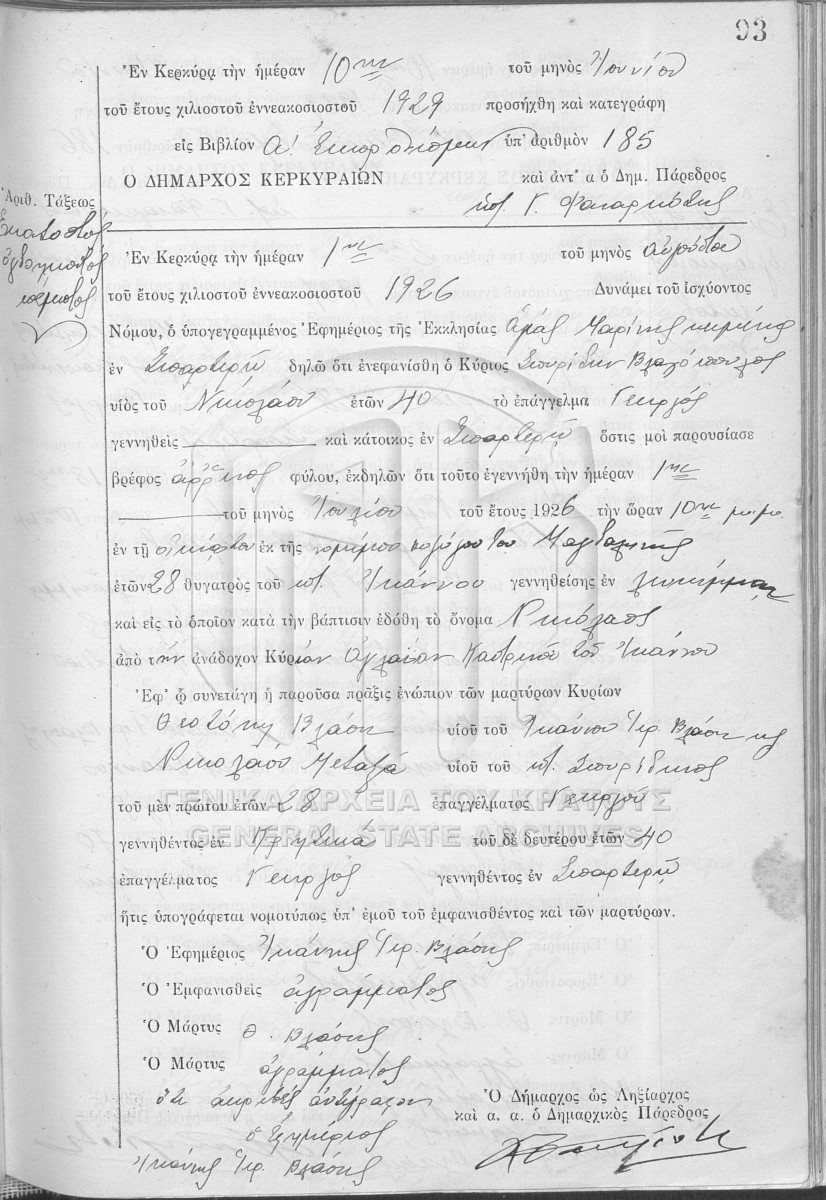 93
Ἐν Κερκύρᾳ τὴν ἡμέραν 10ην τοῦ μηνὸς Ἰουνίου
τοῦ ἔτους χιλιοστοῦ ἐννεακοσιοστοῦ 1929 προσήχθη καὶ κατεγράφη
εἰς Βιβλίον Α' ὑπ' ἀριθμὸν 185
Ο ΔΗΜΑΡΧΟΣ ΚΕΡΚΥΡΑΙΩΝ καὶ ἀντ' α ὁ Δημ. Πάρεδρος
Ἀριθ. Τάξεως
Ἑκατοστὸς
ὀγδοηκοστὸς
πέμπτος
Ἐν Κερκύρᾳ τὴν ἡμέραν 1ην τοῦ μηνὸς Αὐγούστου
τοῦ ἔτους χιλιοστοῦ ἐννεακοσιοστοῦ 1926 Δυνάμει τοῦ ἰσχύοντος
Νόμου, ὁ ὑπογεγραμμένος Ἐφημέριος τῆς Ἐκκλησίας Ἁγίας Μαρίνης
ἐν Σπαρτερῷ δηλῶ ὅτι ἐνεφανίσθη ὁ Κύριος Σπυρίδων Βλαχόπουλος
υἱὸς τοῦ Νικολάου ἐτῶν 40 τὸ ἐπάγγελμα Γεωργὸς
γεννηθεὶς καὶ κάτοικος ἐν Σπαρτερῷ ὅστις μοὶ παρουσίασε
βρέφος ἄρρενος φύλου, ἐκδηλῶν ὅτι τοῦτο ἐγεννήθη τὴν ἡμέραν 1ην
τοῦ μηνὸς Ἰουλίου τοῦ ἔτους 1926 τὴν ὥραν 10ην
ἐν τῇ οἰκίᾳ του ἐκ τῆς νομίμου συζύγου του Μαγδαληνῆς
ἐτῶν 28 θυγατρὸς τοῦ ποτ. Ἰωάννου γεννηθείσης ἐν
καὶ εἰς τὸ ὁποῖον κατὰ τὴν βάπτισιν ἐδόθη τὸ ὄνομα Νικόλαος
ἀπὸ τὴν ἀνάδοχον Κυρίαν Ἀγλαΐαν τοῦ Ἰωάννου
Ἐφ' ᾧ συνετάγη ἡ παροῦσα πρᾶξις ἐνώπιον τῶν μαρτύρων Κυρίων
Θεοτόκη Βλάση υἱοῦ τοῦ Ἰωάννου Ἱερ. Βλάση κς
Νικολάου Μεταξᾶ υἱοῦ τοῦ ποτ. Σπυρίδωνος
ΓΕΝΙΚΑ ΑΡΧΕΙΑ ΤΟΥ ΚΡΑΤΟΥΣ
τοῦ μὲν πρώτου ἐτῶν 28 ἐπαγγέλματος Γεωργοῦ
GENERAL STATE ARCHIVES
γεννηθέντος ἐν τοῦ δὲ δευτέρου ἐτῶν 40
ἐπαγγέλματος Γεωργὸς γεννηθέντος ἐν Σπαρτερῷ
ἥτις ὑπογράφεται νομοτύπως ὑπ' ἐμοῦ τοῦ ἐμφανισθέντος καὶ τῶν μαρτύρων.
Ὁ Ἐφημέριος Ἰωάννης Ἱερ. Βλάσης
Ὁ Ἐμφανισθεὶς ἀγράμματος
Ὁ Μάρτυς Θ. Βλάσης
Ὁ Μάρτυς ἀγράμματος
ὅτι ἀκριβὲς ἀντίγραφον
ὁ Ἐφημέριος
Ἰωάννης Ἱερ. Βλάσης
Ὁ Δήμαρχος ὡς Ληξίαρχος
καὶ α. α. ὁ Δημαρχικὸς Πάρεδρος